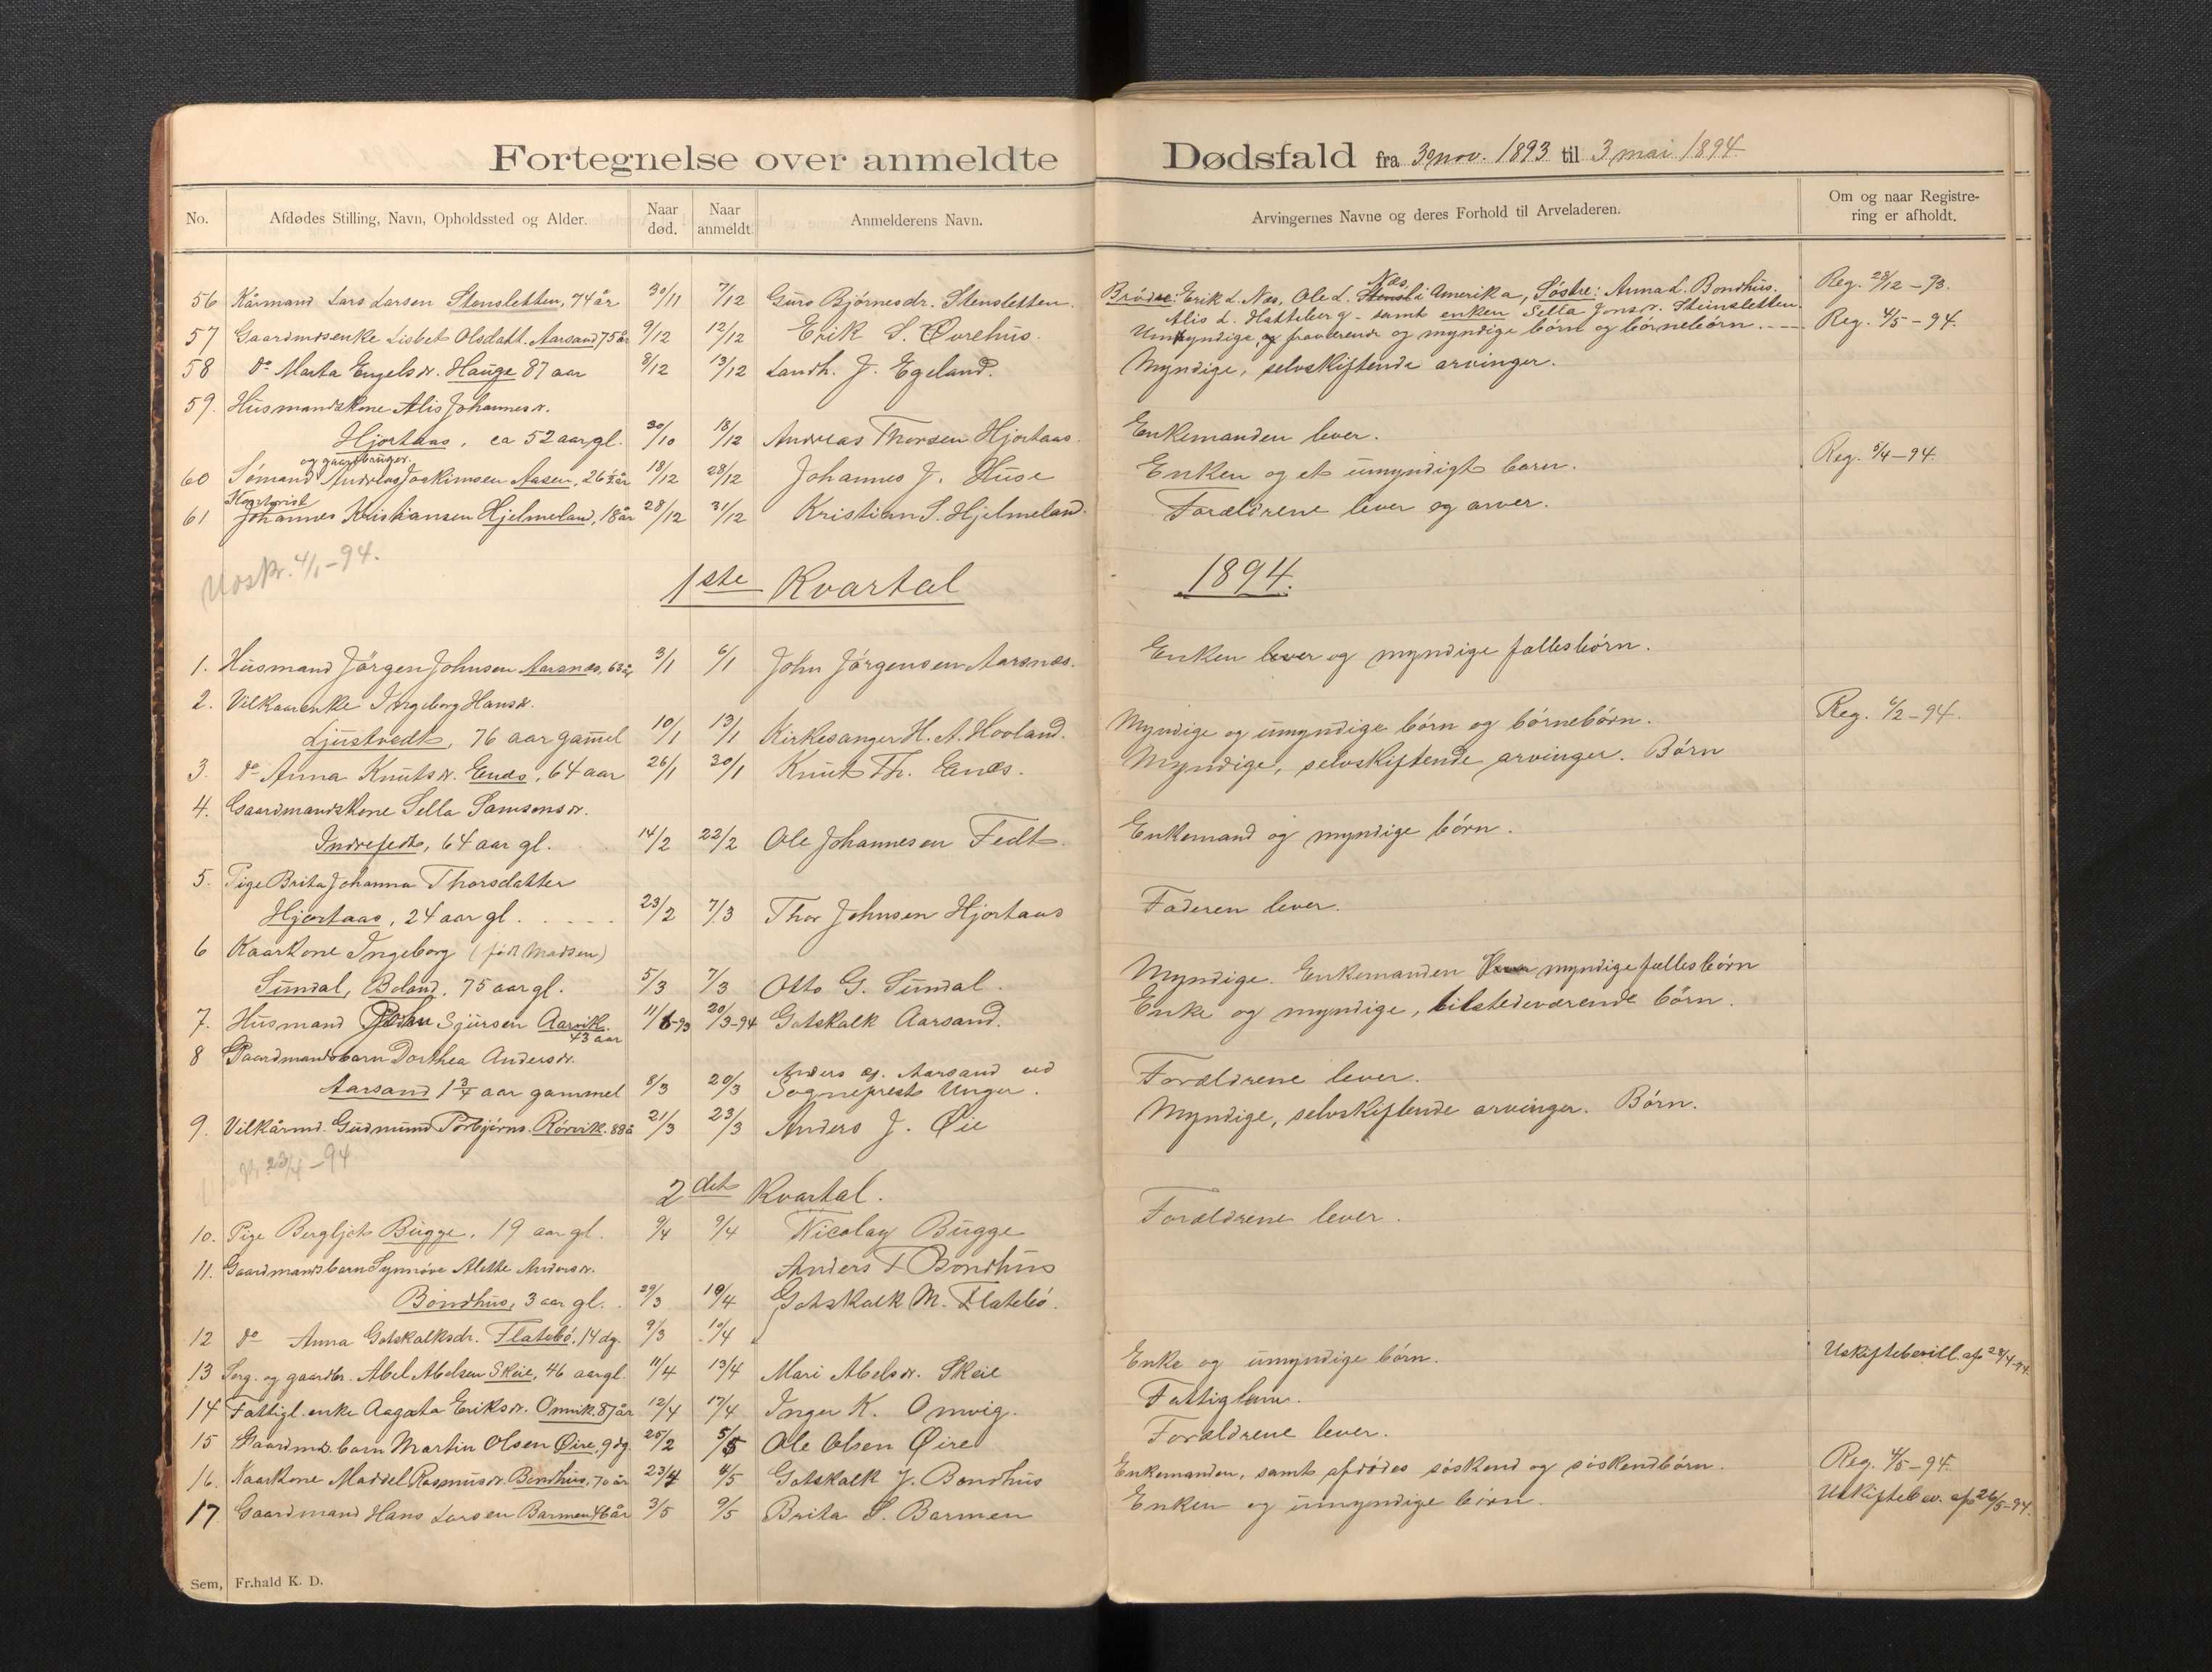 Fortegnelse over anmeldte Dødsfald fra 30 nov. 1893 til 3 mai 1894.
No. Afdødes Stilling, Navn, Opholdssted og Alder. Naar død. Naar anmeldt. Anmelderens Navn. Arvingernes Navne og deres Forhold til Arveladeren. Om og naar Registrering er afholdt.
56 Kårmand Lars Larsen Stensletten, 74 år 30/11 7/12 Guro Bjørnesdr. Stensletten. Brødre: Erik L. Næs, Ole L. Næs, i Amerika, Søstre: Anna L. Bondhus. Reg. 28/12 – 93.
Alis L. Hatteberg – samt enken Sella Jonsdr. Steinsletten.
57 Gaardmdsenke Lisbet Olsdatt. Aarsand 75 år 9/12 12/12 Erik S. Øvrehus. Umyndige, og fraværende og myndige børn og børnebørn. Reg. 4/5 – 94.
58 do Marta Engelsdr. Hauge 87 aar 8/12 13/12 Landh. J. Egeland. Myndige, selvskiftende arvinger.
59. Husmandskone Alis Johannesdr.
Hjortaas, ca 52 aar gl. 30/10 18/12 Andreas Thorsen Hjortaas. Enkemanden lever.
og gaardbruger.
60 Sømand Andreas Joakimsen Aasen, 26½ år 18/12 28/12 Johannes J. Huse Enken og et umyndigt barn. Reg. 5/4 – 94.
61 Johannes Kristiansen Hjelmeland, 18 år 28/12 31/12 Kristian S. Hjelmeland. Forældrene lever og arver.
4/1 – 94.
1ste Kvartal 1894.
1. Husmand Jørgen Johnsen Aarsnæs, 63 år 3/1 6/1 John Jørgensen Aarsnæs. Enken lever og myndige fællesbørn.
2. Vilkaarenke Ingeborg Hansdr.
Ljustvedt, 76 aar gammel 10/1 13/1 Kirkesanger H. A. Hovland. Myndige og umyndige børn og børnebørn. Reg. 6/2 – 94.
3. do Anna Knutsdr. Enæs, 64 aar 26/1 30/1 Knut Th. Enæs. Myndige, selvskiftende arvinger. Børn
4. Gaardmandskone Sella Samsonsdr.
Indrefedt, 64 aar gl. 14/2 22/2 Ole Johannesen Fedt. Enkemand og myndige børn.
5. Pige Brita Johanna Thorsdatter
Hjortaas, 24 aar gl. 23/2 7/3 Thor Johnsen Hjortaas Faderen lever.
6 Kaarkone Ingeborg (født Madsen)
Sundal, Boland, 75 aar gl. 5/3 7/3 Otto G. Sundal. Myndige. Enkemanden myndige fællesbørn
7. Husmand John Sjursen Aarvik. 11/6-93 20/3-94 Gotskalk Aarsand. Enke og myndige, tilstedeværende børn.
43 aar
8 Gaardmandsbarn Dorthea Andersdr.
Aarsand 1 3/4 aar gammel 8/3 20/3 Anders Aarsand ved Sogneprest Unger. Forældrene lever.
9. Vilkårmd. Gudmund Torbjørns. Rørvik. 88 å 21/3 23/3 Anders J. Øie Myndige, selvskiftende arvinger. Børn.
23/4 – 94
2det Kvartal.
10. Pige Bergljot Bugge, 19 aar gl. 9/4 9/4 Nicolay Bugge Forældrene lever.
11. Gaardmandsbarn Synnøve Alette Andersdr. Anders T Bondhus
Bondhus, 3 aar gl. 29/3 10/4 Gotskalk M. Flatebø.
12 do Anna Gotskalksdr. Flatebø. 14 dg. 9/3 10/4
13 Serg. og gaardbr. Abel Abelsen Skeie, 46 aar gl. 11/4 13/4 Mari Abelsdr. Skeie Enke og umyndige børn. Uskiftebevill. af 28/4-94.
14 Fattigl. enke Aagata Eriksdr. Omvik. 87 år 12/4 17/4 Inger K. Omvig. Fattiglem.
15 Gaardmds. barn Martin Olsen Øire, 9 dg. 25/2 5/5 Ole Olsen Øire Forældrene lever.
16. Kaarkone Maddel Rasmusdr. Bondhus, 70 år 23/4 4/5 Gotskalk J. Bondhus Enkemanden, samt afdødes søskend og søskendbørn. Reg. 4/5 – 94.
17 Gaardmand Hans Larsen Barmen 46 år 3/5 9/5 Brita S. Barmen Enken og umyndige børn. Uskiftebev. af 26/5-94.
Sem, Fr.hald K. D.